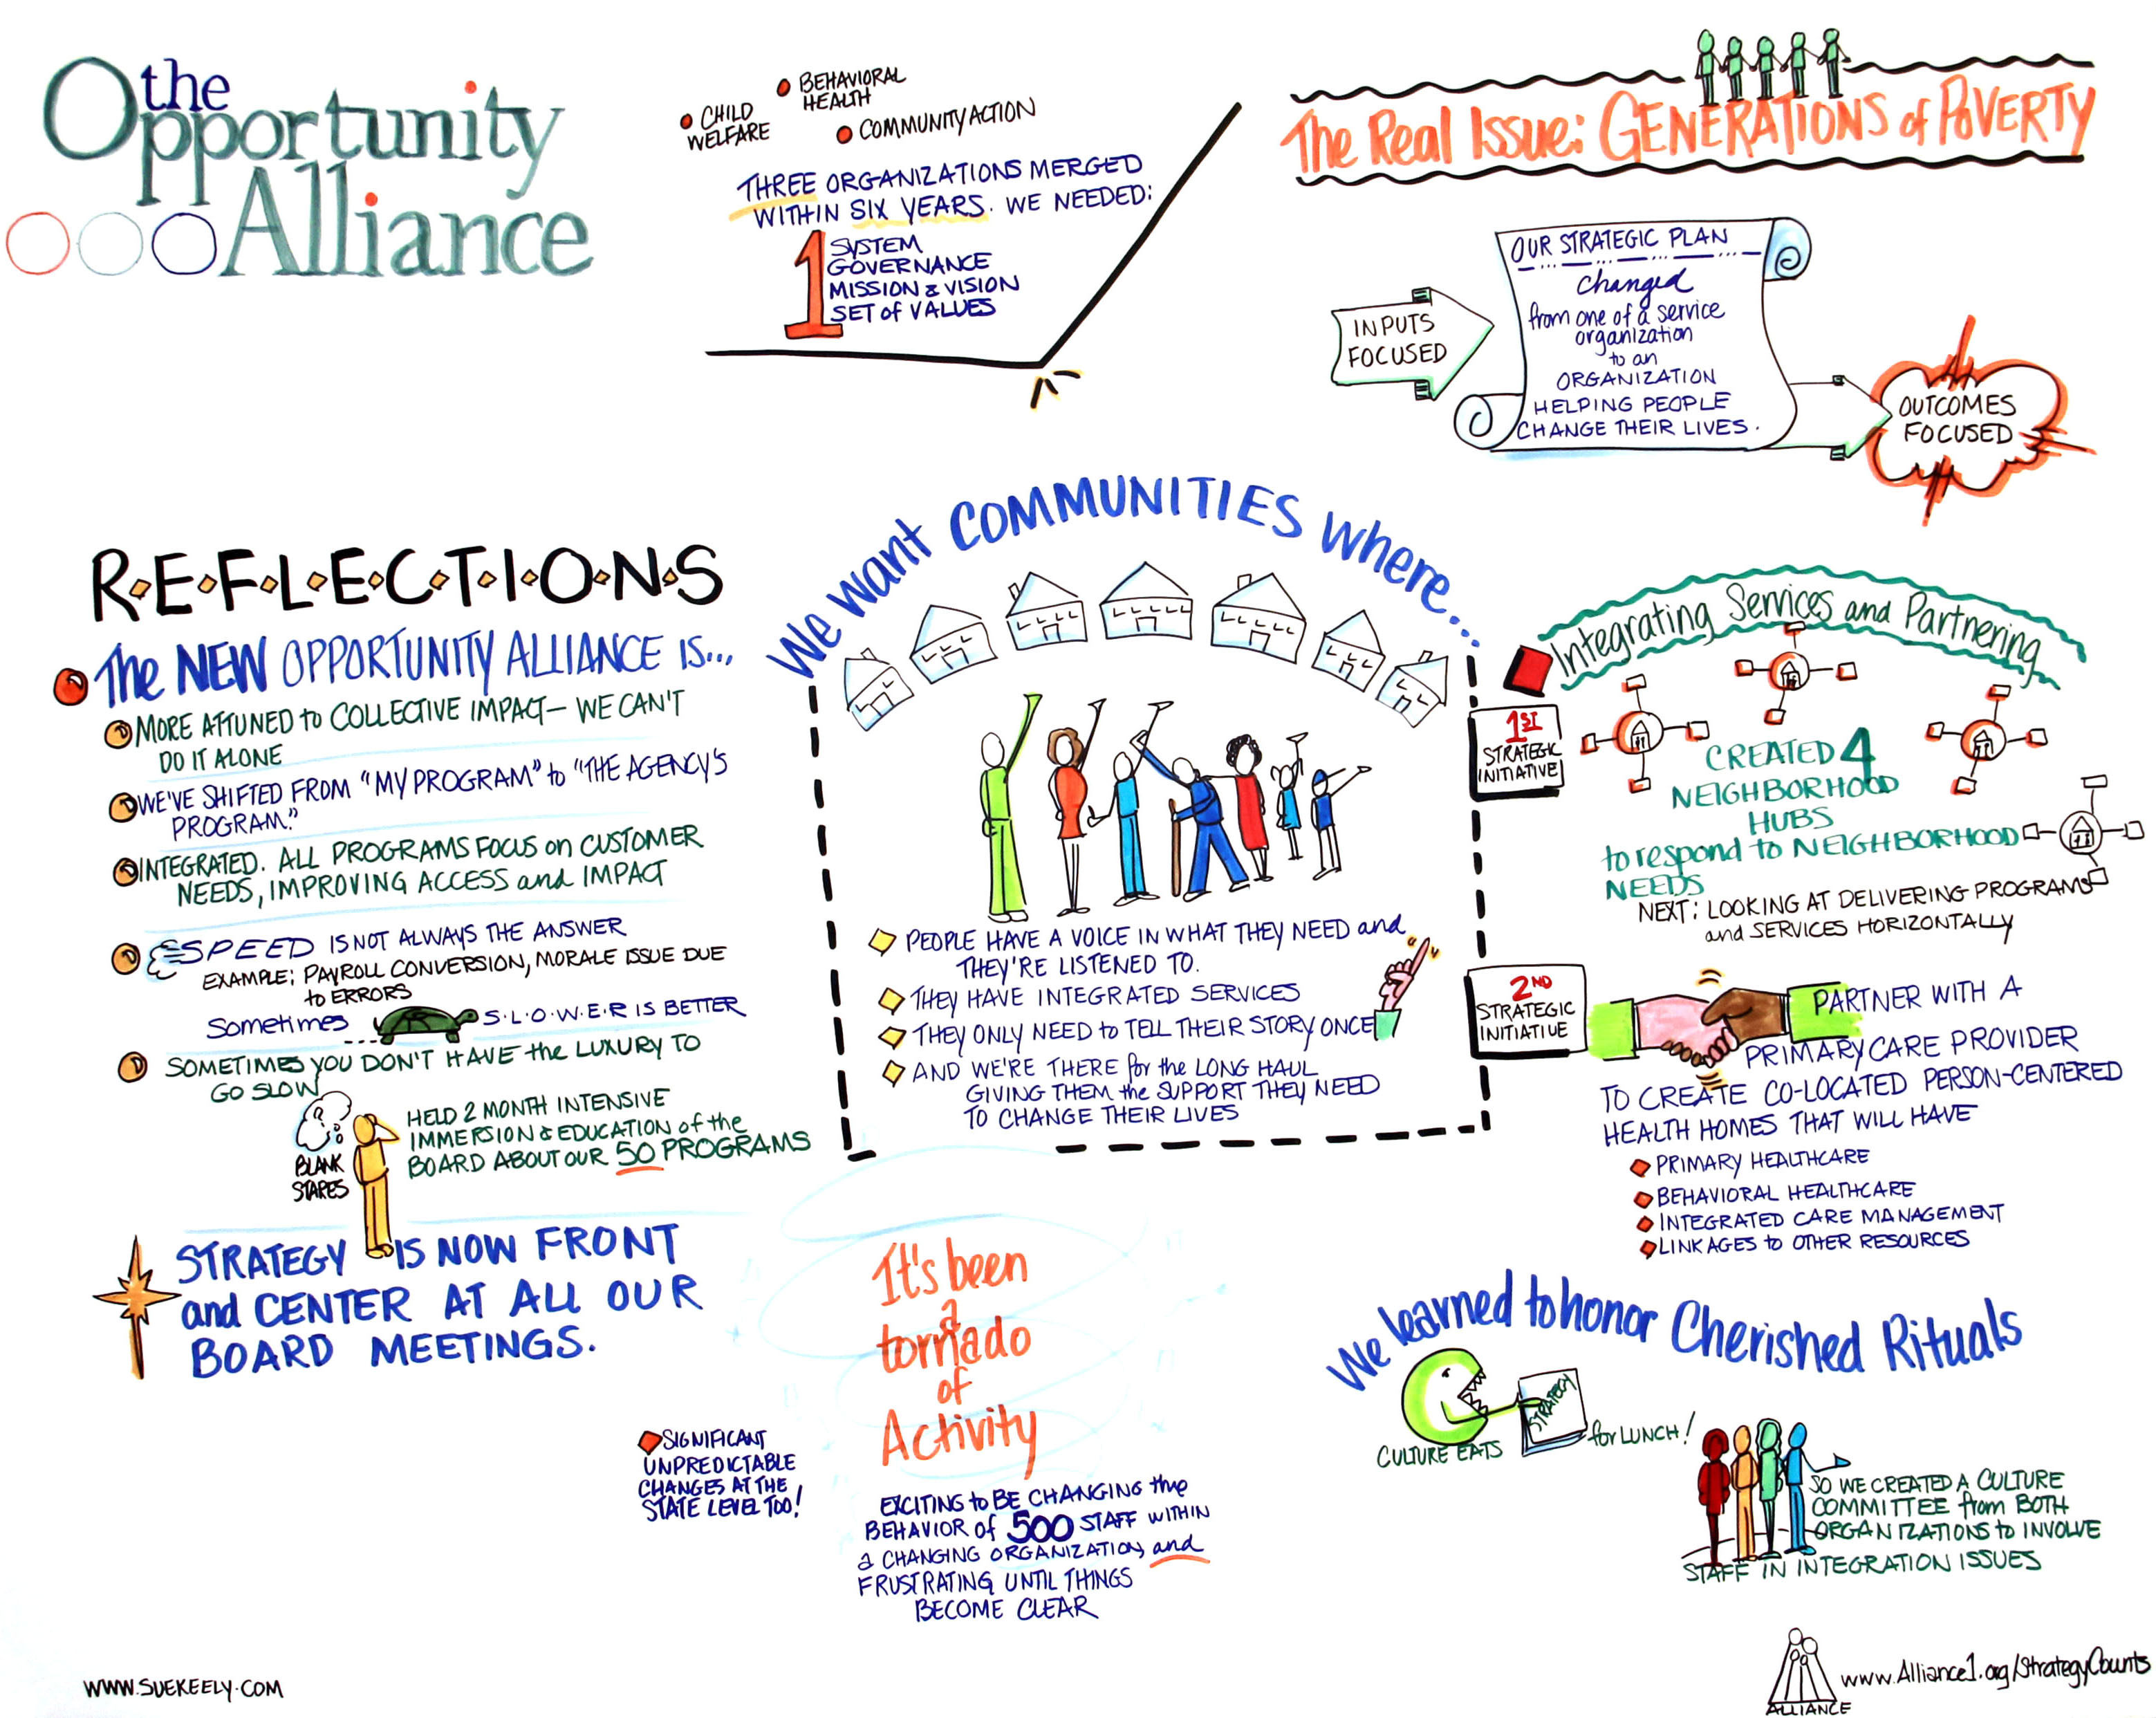 the
Opportunity
Alliance
CHILD
WELFARE
BEHAVIORAL
HEALTH
COMMUNITY ACTION
THREE ORGANIZATIONS MERGED
WITHIN SIX YEARS. WE NEEDED:
1
SYSTEM
GOVERNANCE
MISSION & VISION
SET of VALUES
The Real Issue: GENERATIONS of POVERTY
INPUTS
FOCUSED
OUR STRATEGIC PLAN
changed
from one of a service
organization
to an
ORGANIZATION
HELPING PEOPLE
CHANGE THEIR LIVES.
OUTCOMES
FOCUSED
R·E·F·L·E·C·T·I·O·N·S
The NEW OPPORTUNITY ALLIANCE IS...
MORE ATTUNED to COLLECTIVE IMPACT – WE CAN'T
DO IT ALONE
WE'VE SHIFTED FROM "MY PROGRAM" to "THE AGENCY'S
PROGRAM."
INTEGRATED. ALL PROGRAMS FOCUS on CUSTOMER
NEEDS, IMPROVING ACCESS and IMPACT
SPEED IS NOT ALWAYS THE ANSWER
EXAMPLE: PAYROLL CONVERSION, MORALE ISSUE DUE
to ERRORS
Sometimes S·L·O·W·E·R IS BETTER
SOMETIMES YOU DON'T HAVE the LUXURY TO
GO SLOW
BLANK
STARES
HELD 2 MONTH INTENSIVE
IMMERSION & EDUCATION of the
BOARD ABOUT OUR 50 PROGRAMS
STRATEGY IS NOW FRONT
and CENTER AT ALL OUR
BOARD MEETINGS.
We want COMMUNITIES where...
PEOPLE HAVE A VOICE IN WHAT THEY NEED and
THEY'RE LISTENED TO.
THEY HAVE INTEGRATED SERVICES
THEY ONLY NEED to TELL THEIR STORY ONCE
AND WE'RE THERE for the LONG HAUL
GIVING THEM the SUPPORT THEY NEED
TO CHANGE THEIR LIVES
Integrating Services and Partnering
1ST
STRATEGIC
INITIATIVE
CREATED 4
NEIGHBORHOOD
HUBS
to respond to NEIGHBORHOOD
NEEDS
NEXT: LOOKING AT DELIVERING PROGRAMS
and SERVICES HORIZONTALLY
2ND
STRATEGIC
INITIATIVE
PARTNER WITH A
PRIMARY CARE PROVIDER
TO CREATE CO-LOCATED PERSON-CENTERED
HEALTH HOMES THAT WILL HAVE
PRIMARY HEALTHCARE
BEHAVIORAL HEALTHCARE
INTEGRATED CARE MANAGEMENT
LINKAGES to OTHER RESOURCES
It's been
a
tornado
of
Activity
SIGNIFICANT
UNPREDICTABLE
CHANGES AT THE
STATE LEVEL TOO!
EXCITING to BE CHANGING the
BEHAVIOR of 500 STAFF WITHIN
a CHANGING ORGANIZATION, and
FRUSTRATING UNTIL THINGS
BECOME CLEAR
We learned to honor Cherished Rituals
CULTURE EATS
STRATEGY
for LUNCH!
SO WE CREATED A CULTURE
COMMITTEE from BOTH
ORGANIZATIONS to INVOLVE
STAFF IN INTEGRATION ISSUES
WWW.SUEKEELY.COM
ALLIANCE
www.Alliance1.org/StrategyCounts